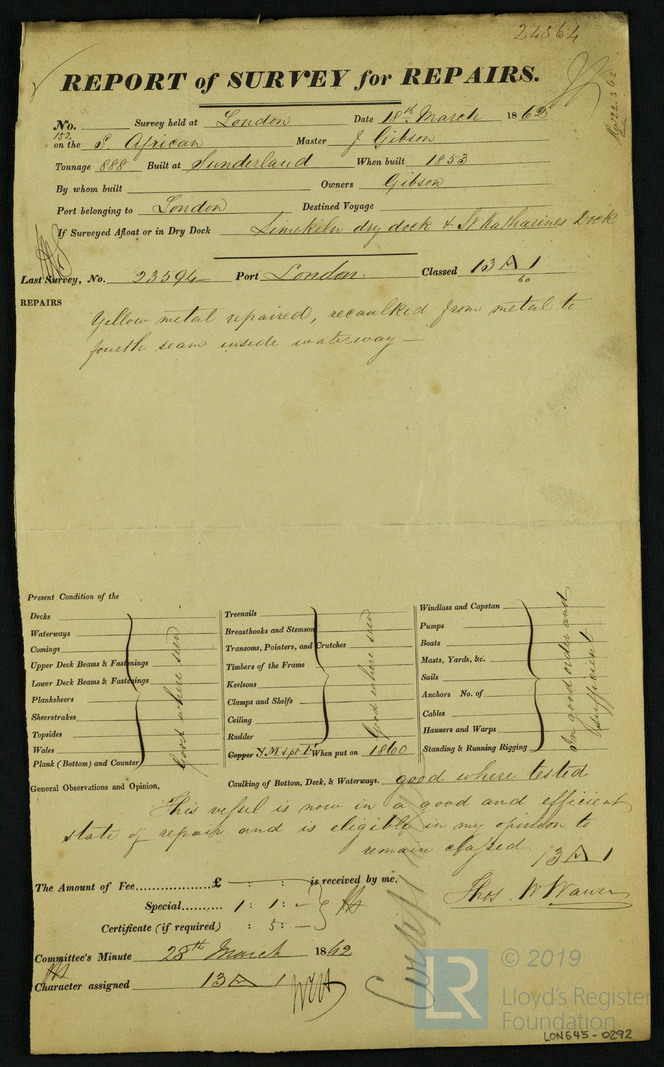 24564
REPORT of SURVEY for REPAIRS.
No. Survey held at London Date 18th March 1862
152
on the S. African Master J Gibson
Tonnage 888 Built at Sunderland When built 1853
By whom built Owners Gibson
Port belonging to London Destined Voyage
If Surveyed Afloat or in Dry Dock Limekiln dry dock & St Katharines Dock
Last Survey, No. 23594 Port London. Classed 13 A 1
60
REPAIRS
Yellow metal repaired, recaulked from metal to
fourth seam inside waterway—
Present Condition of the
Decks
Waterways
Comings
Upper Deck Beams & Fastenings
Lower Deck Beams & Fastenings
Planksheers
Sheerstrakes
Topsides
Wales
Plank (Bottom) and Counter
Good where seen
Treenails
Breasthooks and Stemson
Transoms, Pointers, and Crutches
Timbers of the Frame
Keelsons
Clamps and Shelfs
Ceiling
Rudder
Good where seen
Copper Y.M & pt When put on 1860
Windlass and Capstan
Pumps
Boats
Masts, Yards, &c.
Sails
Anchors No. of
Cables
Hawsers and Warps
Standing & Running Rigging
In good order and
sufficient
General Observations and Opinion, Caulking of Bottom, Deck, & Waterways. good where tested
This vessel is now in a good and efficient
state of repair and is eligible in my opinion to
remain classed 13 A 1
The Amount of Fee £ : : is received by me,
Thos. W Wawn
Special 1 : 1 : –
Certificate (if required) : 5 : –
Committee's Minute 28th March 1862
Character assigned 13 A 1
Cardiff
LR
© 2019
Lloyd's Register
Foundation
LON645-0292